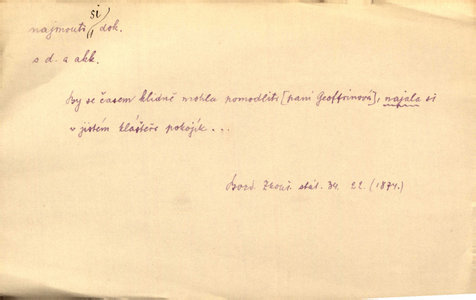 najmouti si dok.
s d. a akk.
By se časem klidně mohla pomodliti [paní Geoffrinová], najala si
v jistém klášteře pokojík...
stát. 34. 22. (1874.)